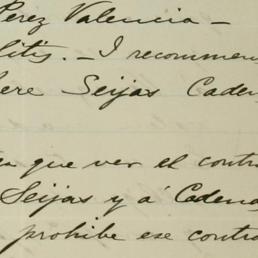 Perez Valencia —
litis. — I recommen
ere Seijas Caden
que ver el contra
Seijas y á Cadena
prohibe ese contra